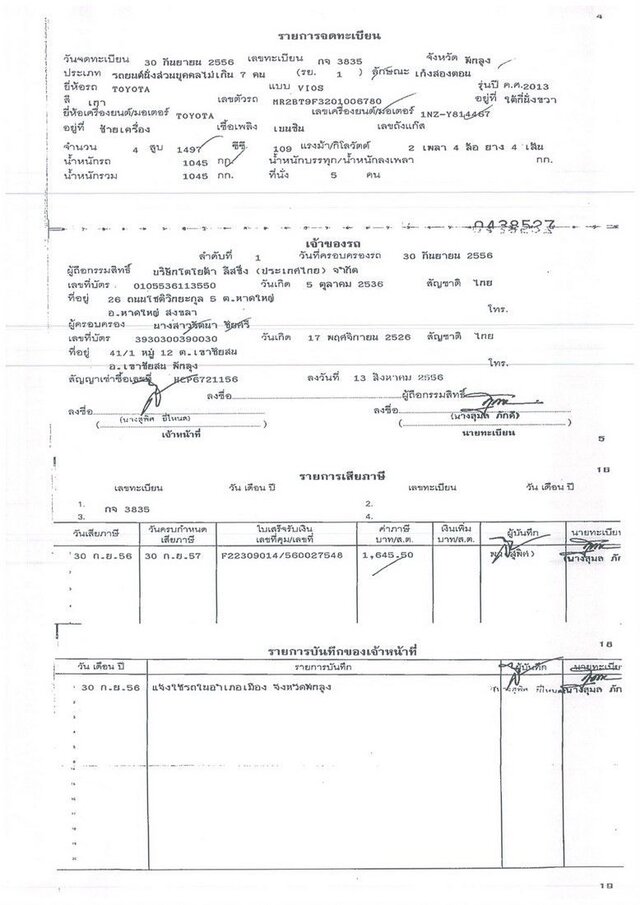 4
รายการจดทะเบียน
วันจดทะเบียน 30 กันยายน 2556 เลขทะเบียน กจ 3835 จังหวัด พัทลุง
ประเภท รถยนต์นั่งส่วนบุคคลไม่เกิน 7 คน (รย. 1 ) ลักษณะ เก๋งสองตอน
ยี่ห้อรถ TOYOTA แบบ VIOS รุ่นปี ค.ศ.2013
สี เทา เลขตัวรถ MR2BT9F3201006780 อยู่ที่ ใต้ที่นั่งขวา
ยี่ห้อเครื่องยนต์/มอเตอร์ TOYOTA เลขเครื่องยนต์/มอเตอร์ 1NZ-Y814467
อยู่ที่ ซ้ายเครื่อง เชื้อเพลิง เบนซิน เลขถังแก๊ส
จำนวน 4 สูบ 1497 ซีซี 109 แรงม้า/กิโลวัตต์ 2 เพลา 4 ล้อ ยาง 4 เส้น
น้ำหนักรถ 1045 กก. น้ำหนักบรรทุก/น้ำหนักลงเพลา กก.
น้ำหนักรวม 1045 กก. ที่นั่ง 5 คน
0438527
เจ้าของรถ
ลำดับที่ 1 วันที่ครอบครองรถ 30 กันยายน 2556
ผู้ถือกรรมสิทธิ์ บริษัทโตโยต้า ลีสซิ่ง (ประเทศไทย) จำกัด
เลขที่บัตร 0105536113550 วันเกิด 5 ตุลาคม 2536 สัญชาติ ไทย
ที่อยู่ 26 ถนนโชติวิทยะกุล 5 ต.หาดใหญ่
อ.หาดใหญ่ สงขลา โทร.
ผู้ครอบครอง
เลขที่บัตร 3930300390030 วันเกิด 17 พฤศจิกายน 2526 สัญชาติ ไทย
ที่อยู่ 41/1 หมู่ 12 ต.เขาชัยสน
อ.เขาชัยสน พัทลุง โทร.
สัญญาเช่าซื้อเลขที่ HCP6721156 ลงวันที่ 13 สิงหาคม 2556
ลงชื่อ ผู้ถือกรรมสิทธิ์
ลงชื่อ ลงชื่อ
(นางสุพิศ ยี่โหนด) (นางสุมล ภักดี)
เจ้าหน้าที่ นายทะเบียน
5
18
รายการเสียภาษี
เลขทะเบียน วัน เดือน ปี เลขทะเบียน วัน เดือน ปี
1. 2.
กจ 3835
3. 4.
วันเสียภาษี วันครบกำหนดเสียภาษี ใบเสร็จรับเงิน เลขที่คุม/เลขที่ ค่าภาษี บาท/ส.ต. เงินเพิ่ม บาท/ส.ต. ผู้บันทึก นายทะเบียน
30 ก.ย.56 30 ก.ย.57 F22309014/560027548 1,645.50 (นางสุมล ภัก
18
รายการบันทึกของเจ้าหน้าที่
วัน เดือน ปี รายการบันทึก ผู้บันทึก นายทะเบีย
30 ก.ย.56 แจ้งใช้รถในอำเภอเมือง จังหวัดพัทลุง นางสุมล ภัก
19